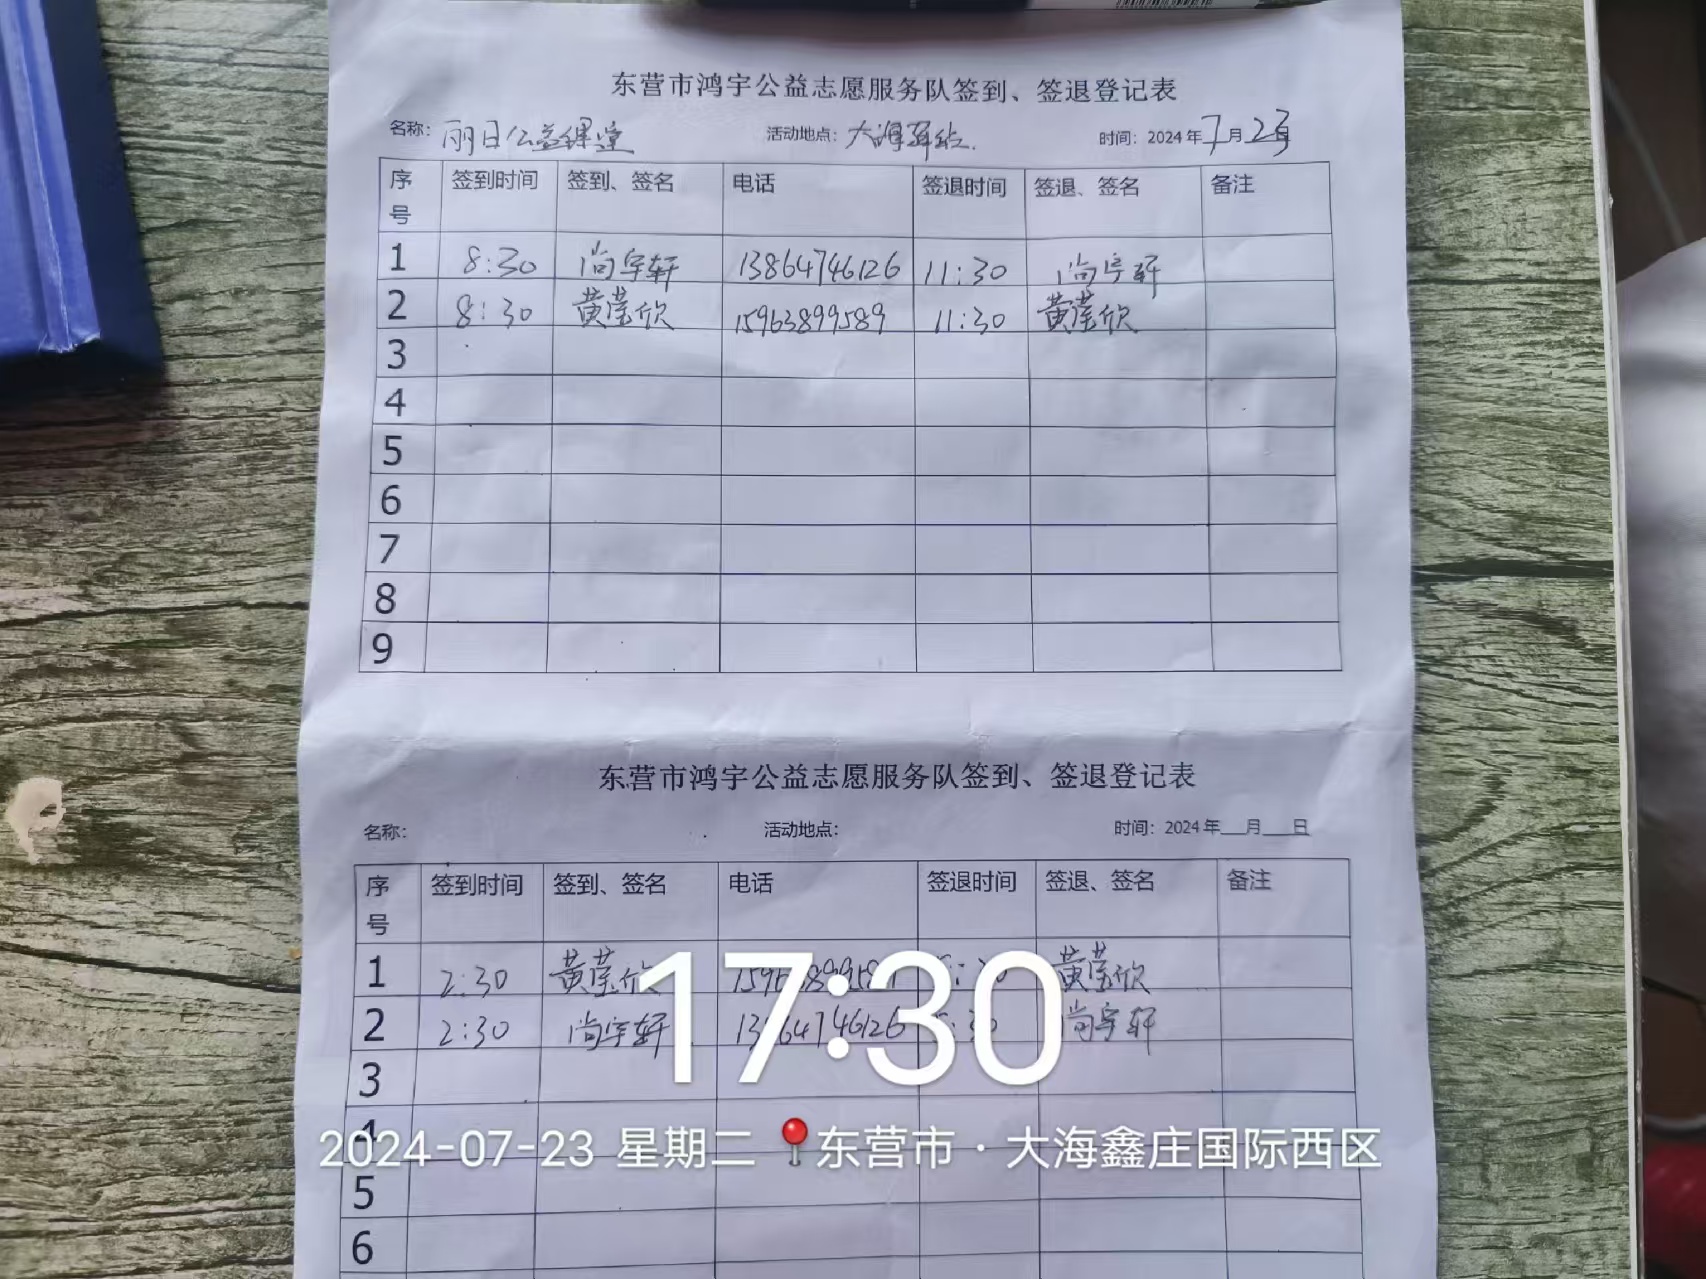 东营市鸿宇公益志愿服务队签到、签退登记表
名称：丽日公益课堂 活动地点：大海 时间：2024年7月23日
序号 签到时间 签到、签名 电话 签退时间 签退、签名 备注
1 8:30 尚宇轩 13864746126 11:30 尚宇轩
2 8:30 黄莹欣 15963899589 11:30 黄莹欣
3
4
5
6
7
8
9
东营市鸿宇公益志愿服务队签到、签退登记表
名称： 活动地点： 时间：2024年___月___日
序号 签到时间 签到、签名 电话 签退时间 签退、签名 备注
1 2:30 黄莹欣 :30 黄莹欣
2 2:30 尚宇轩 13864746126 :30 尚宇轩
3
17:30
4
2024-07-23 星期二 东营市·大海鑫庄国际西区
5
6